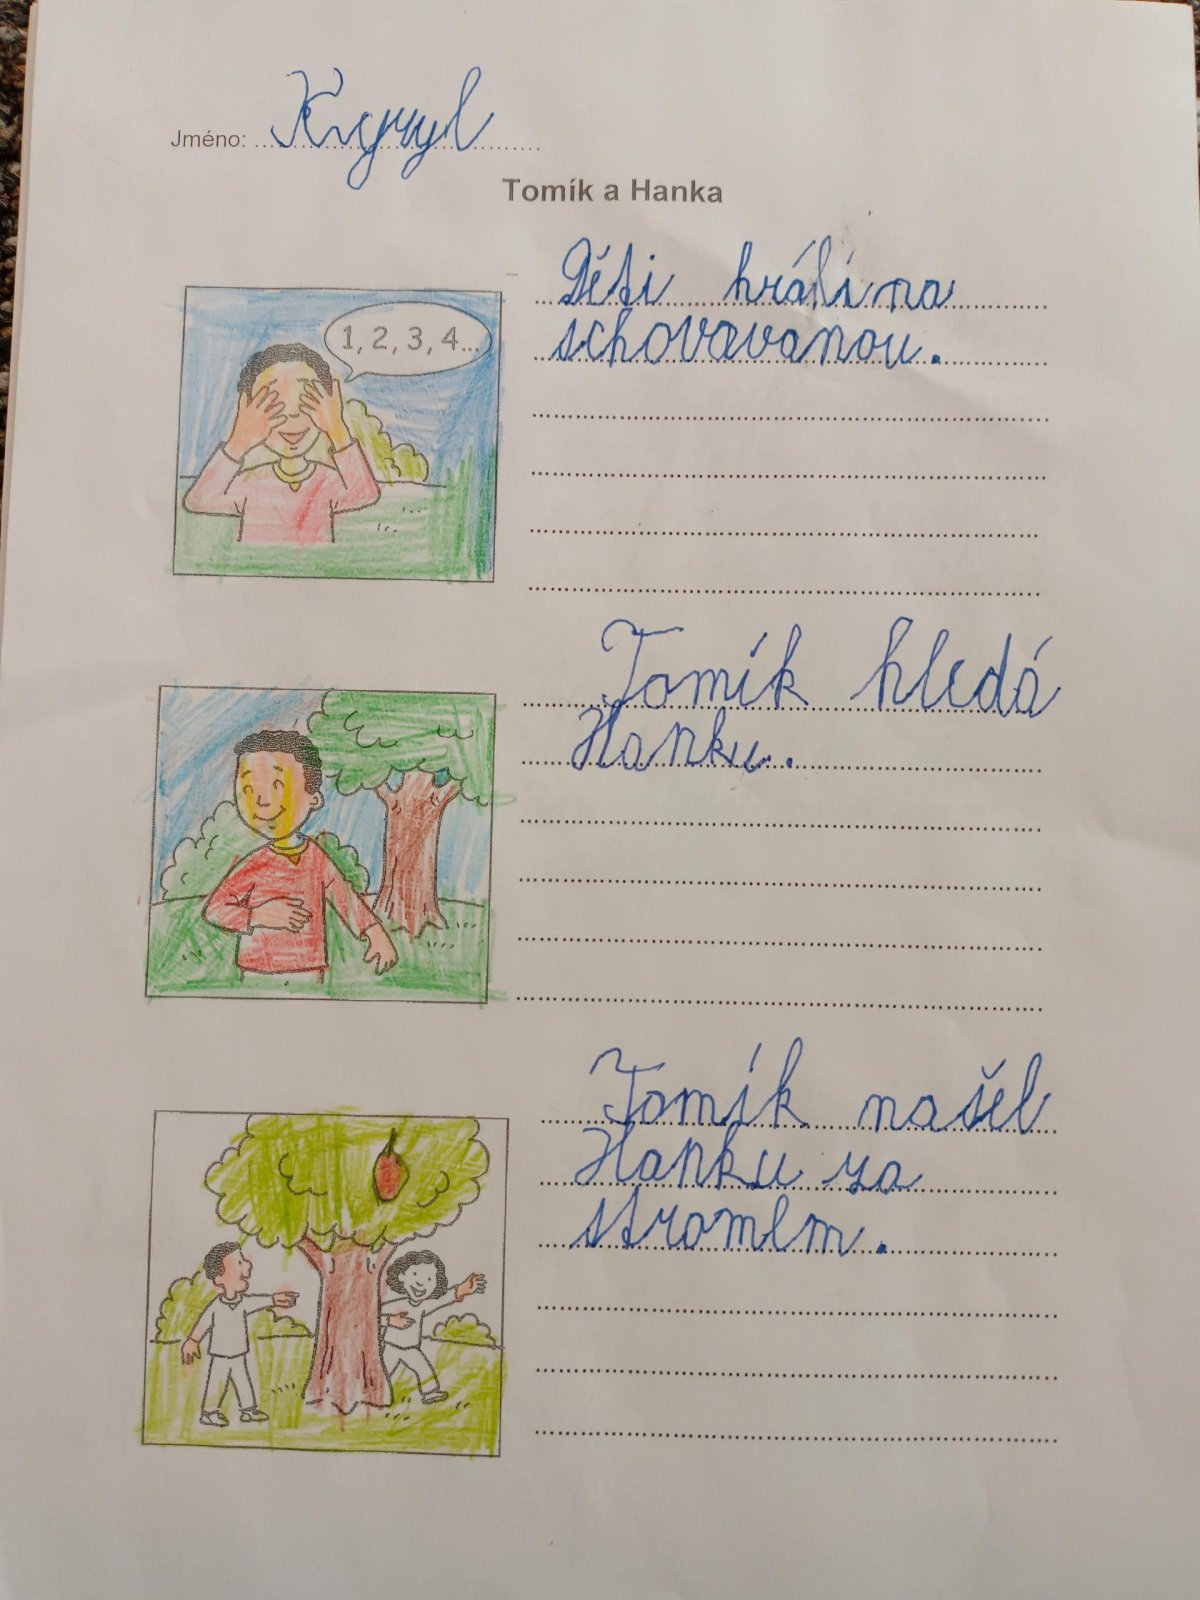 Jméno: Kyryl
Tomík a Hanka
1, 2, 3, 4...
Děti hráli na
schovavanou.
Tomík hledá
Hanku.
Tomík našel
Hanku za
stromem.